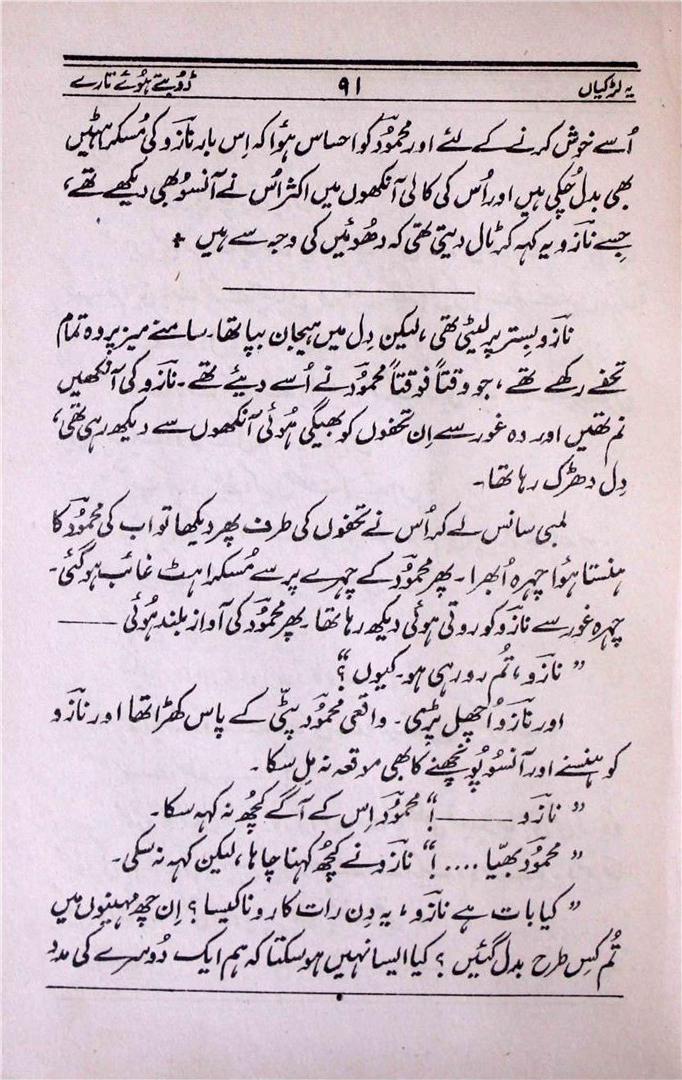 یہ لڑکیاں ۹۱ ڈوبتے ہوُئے تارے
اُسے خوش کرنے کے لئے اور محموؔد کو احساس ہوُا کہ اِس بار نازؔو کی مُسکراہٹیں
بھی بدل چُکی ہیں اور اُس کی کالی آنکھوں میں اکثر اُس نے آنسو بھی دیکھے تھے،
جِسے نازؔو یہ کہہ کر ٹال دیتی تھی کہ دھُوئیں کی وجہ سے ہیں ٭
نازؔو بِستر پر لیٹی تھی، لیکن دِل میں ہیجان بپا تھا۔ سامنے میز پر وہ تمام
تحفے رکھے تھے، جو وقتاً فوقتاً محموؔد نے اُسے دیئے تھے۔ نازؔو کی آنکھیں
نم تھیں اور وہ غور سے اِن تحفوں کو بھیگی ہُوئی آنکھوں سے دیکھ رہی تھی،
دِل دھڑک رہا تھا۔
لمبی سانس لے کر اُس نے تحفوں کی طرف پھر دیکھا تو اب کی محموؔد کا
ہنستا ہوُا چہرہ اُبھرا۔ پھر محموؔد کے چہرے پر سے مُسکراہٹ غائب ہو گئی۔
چہرہ غور سے نازؔو کو روتی ہوئی دیکھ رہا تھا۔ پھر محموؔد کی آواز بلند ہُوئی ——
”نازؔو، تُم رو رہی ہو۔ کیوں؟“
اور نازؔو اُچھل پڑی۔ واقعی محموؔد پٹّی کے پاس کھڑا تھا اور نازؔو
کو ہنسنے اور آنسوُ پوُنچھنے کا بھی موقعہ نہ مِل سکا۔
”نازؔو ——!“ محموؔد اِس کے آگے کچھُ نہ کہہ سکا۔
”محموؔد بھیّا ....!“ نازؔو نے کچھُ کہنا چاہا، لیکن کہہ نہ سکی۔
”کیا بات ہے نازؔو، یہ دِن رات کا رونا کیسا؟ اِن چھ مہینوں میں
تُم کِس طرح بدل گئیں؟ کیا ایسا نہیں ہو سکتا کہ ہم ایک دُوسرے کی مدد